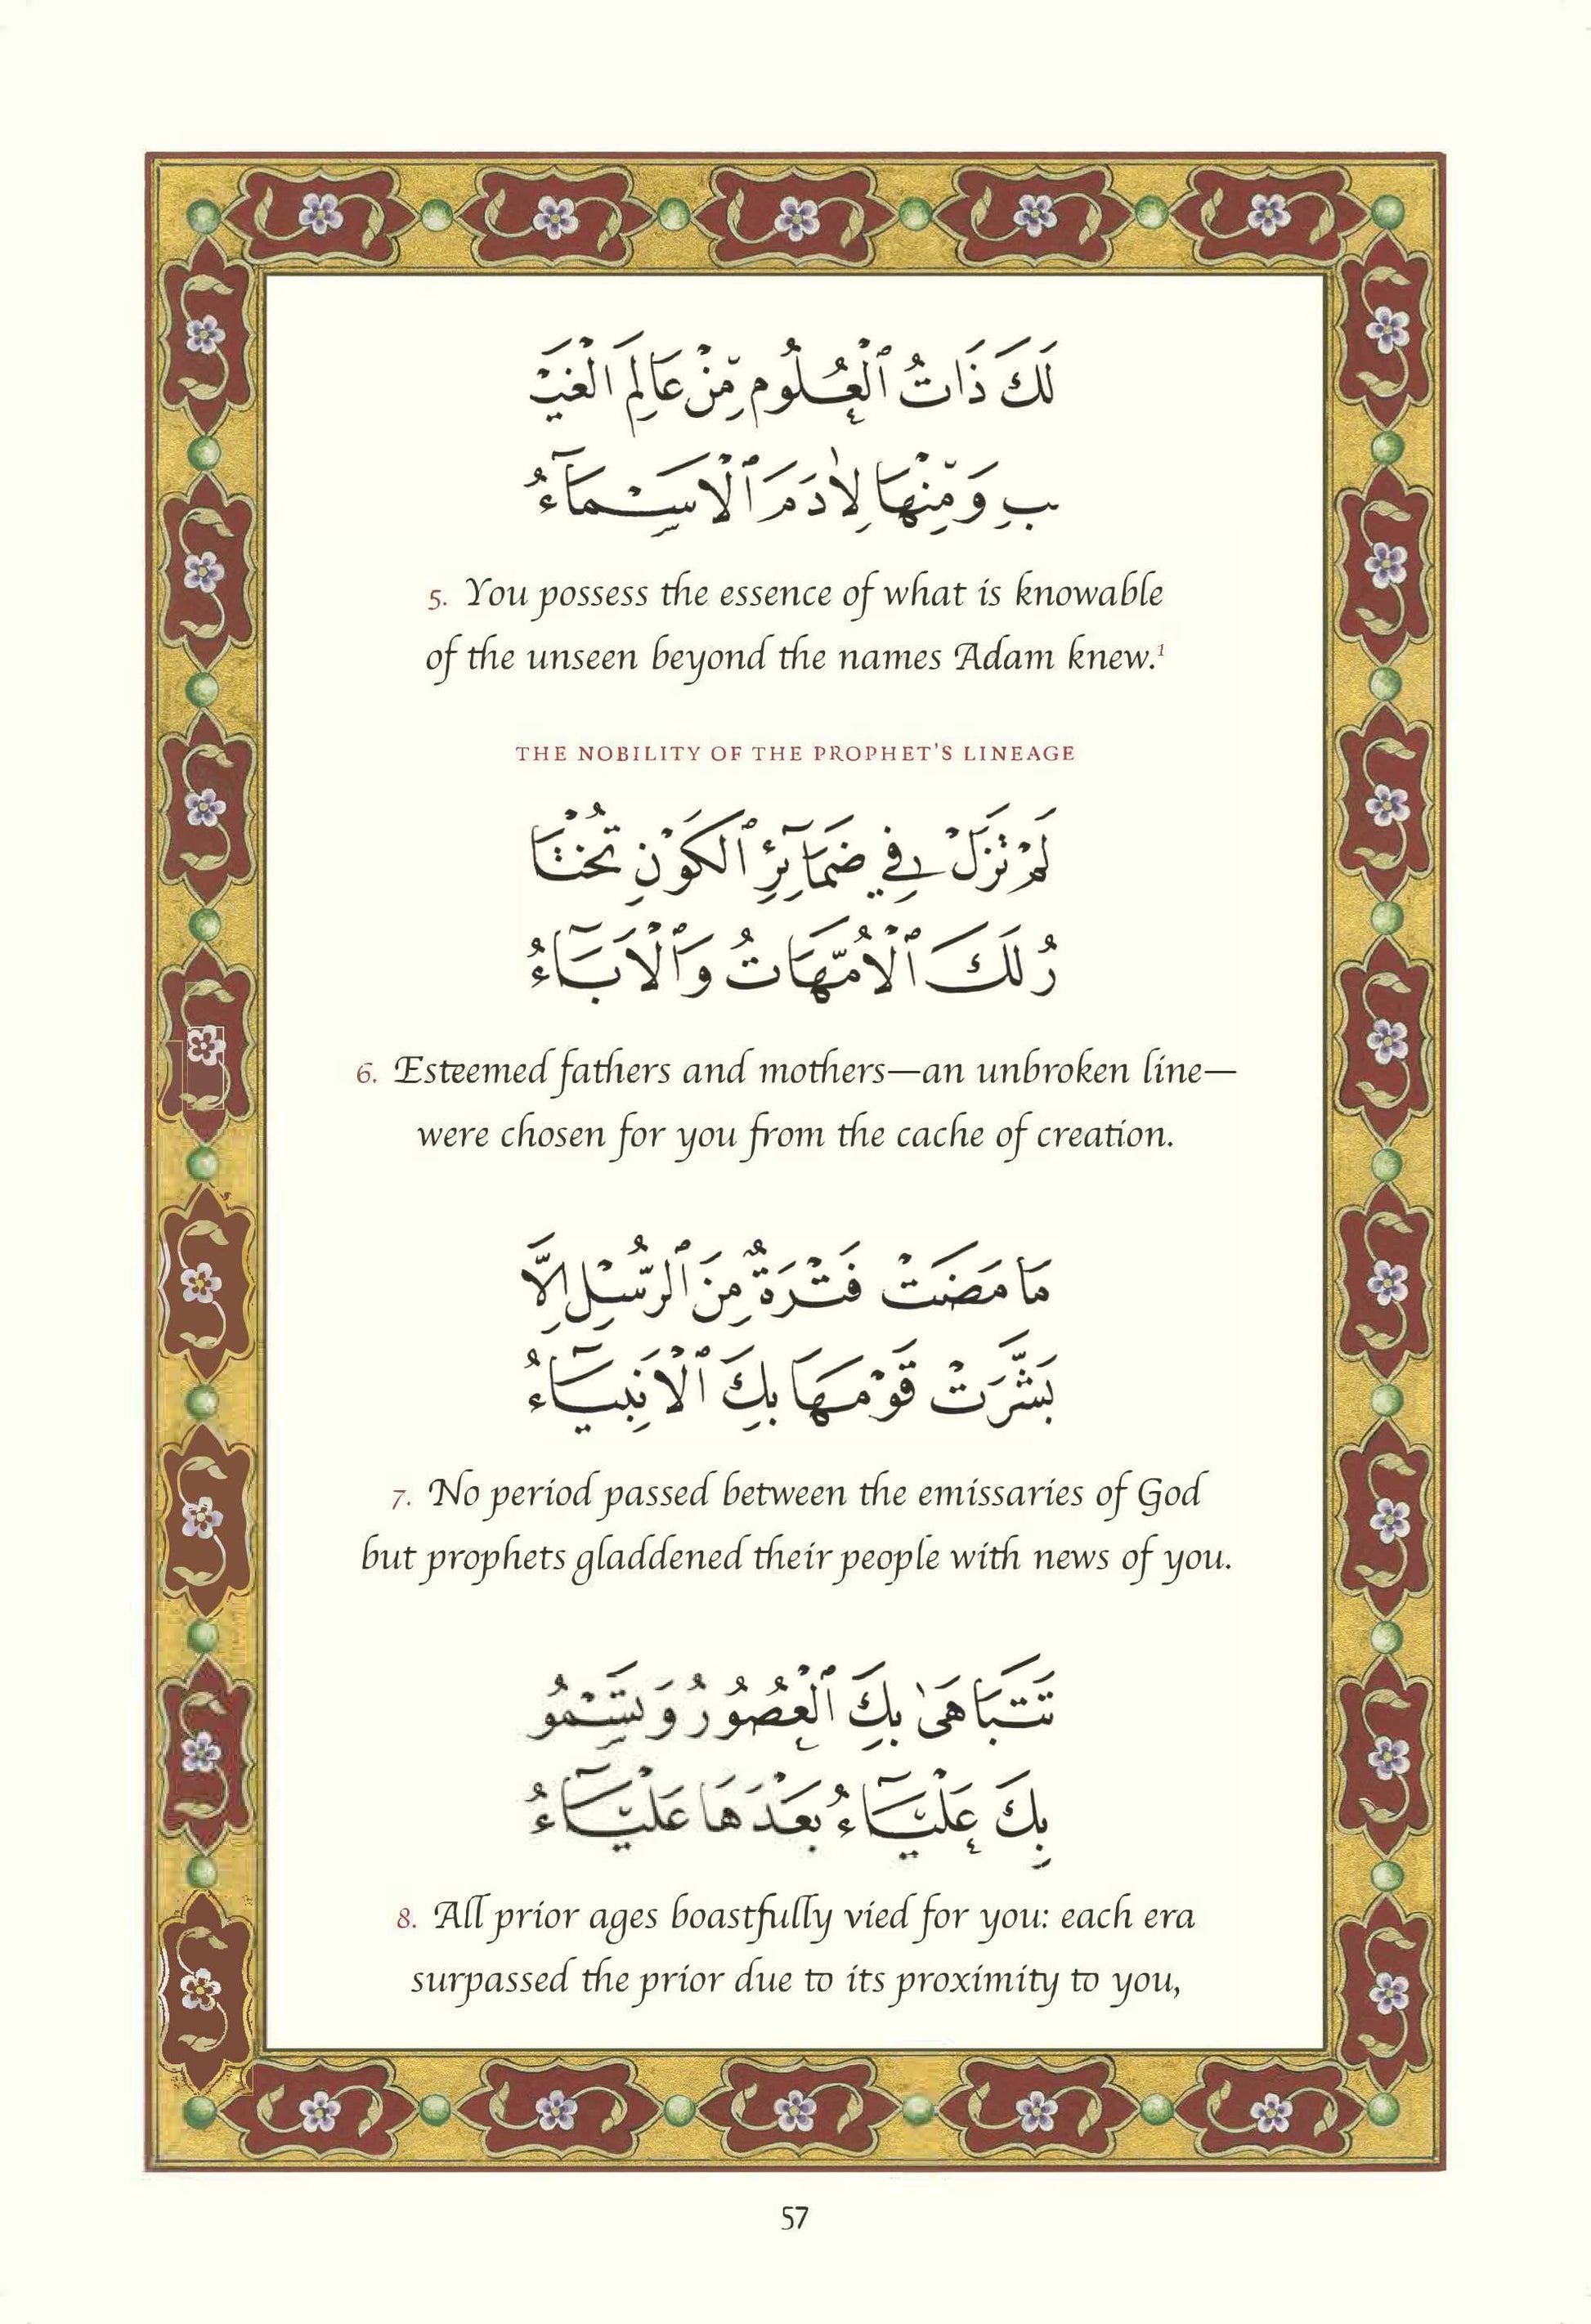 لَكَ ذَاتُ ٱلْعُلُومِ مِّنْ عَالِمِ الْغَيْـ
ـبِ وَمِنْهَا لِاٰدَمَ ٱلْاَسْمَآءُ
5. You possess the essence of what is knowable
of the unseen beyond the names Adam knew.¹
THE NOBILITY OF THE PROPHET'S LINEAGE
لَمْ تَزَلْ فِي ضَمَآئِرِ ٱلْكَوْنِ تُخْتَا
رُ لَكَ ٱلْاُمَّهَاتُ وَٱلْاٰبَآءُ
6. Esteemed fathers and mothers—an unbroken line—
were chosen for you from the cache of creation.
مَا مَضَتْ فَتْرَةٌ مِنَ ٱلرُّسْلِ اِلَّا
بَشَّرَتْ قَوْمَهَا بِكَ ٱلْاَنْبِيَآءُ
7. No period passed between the emissaries of God
but prophets gladdened their people with news of you.
تَتَبَاهَىٰ بِكَ ٱلْعُصُورُ وَتَسْمُو
بِكَ عَلْيَآءُ بَعْدَهَا عَلْيَآءُ
8. All prior ages boastfully vied for you: each era
surpassed the prior due to its proximity to you,
57